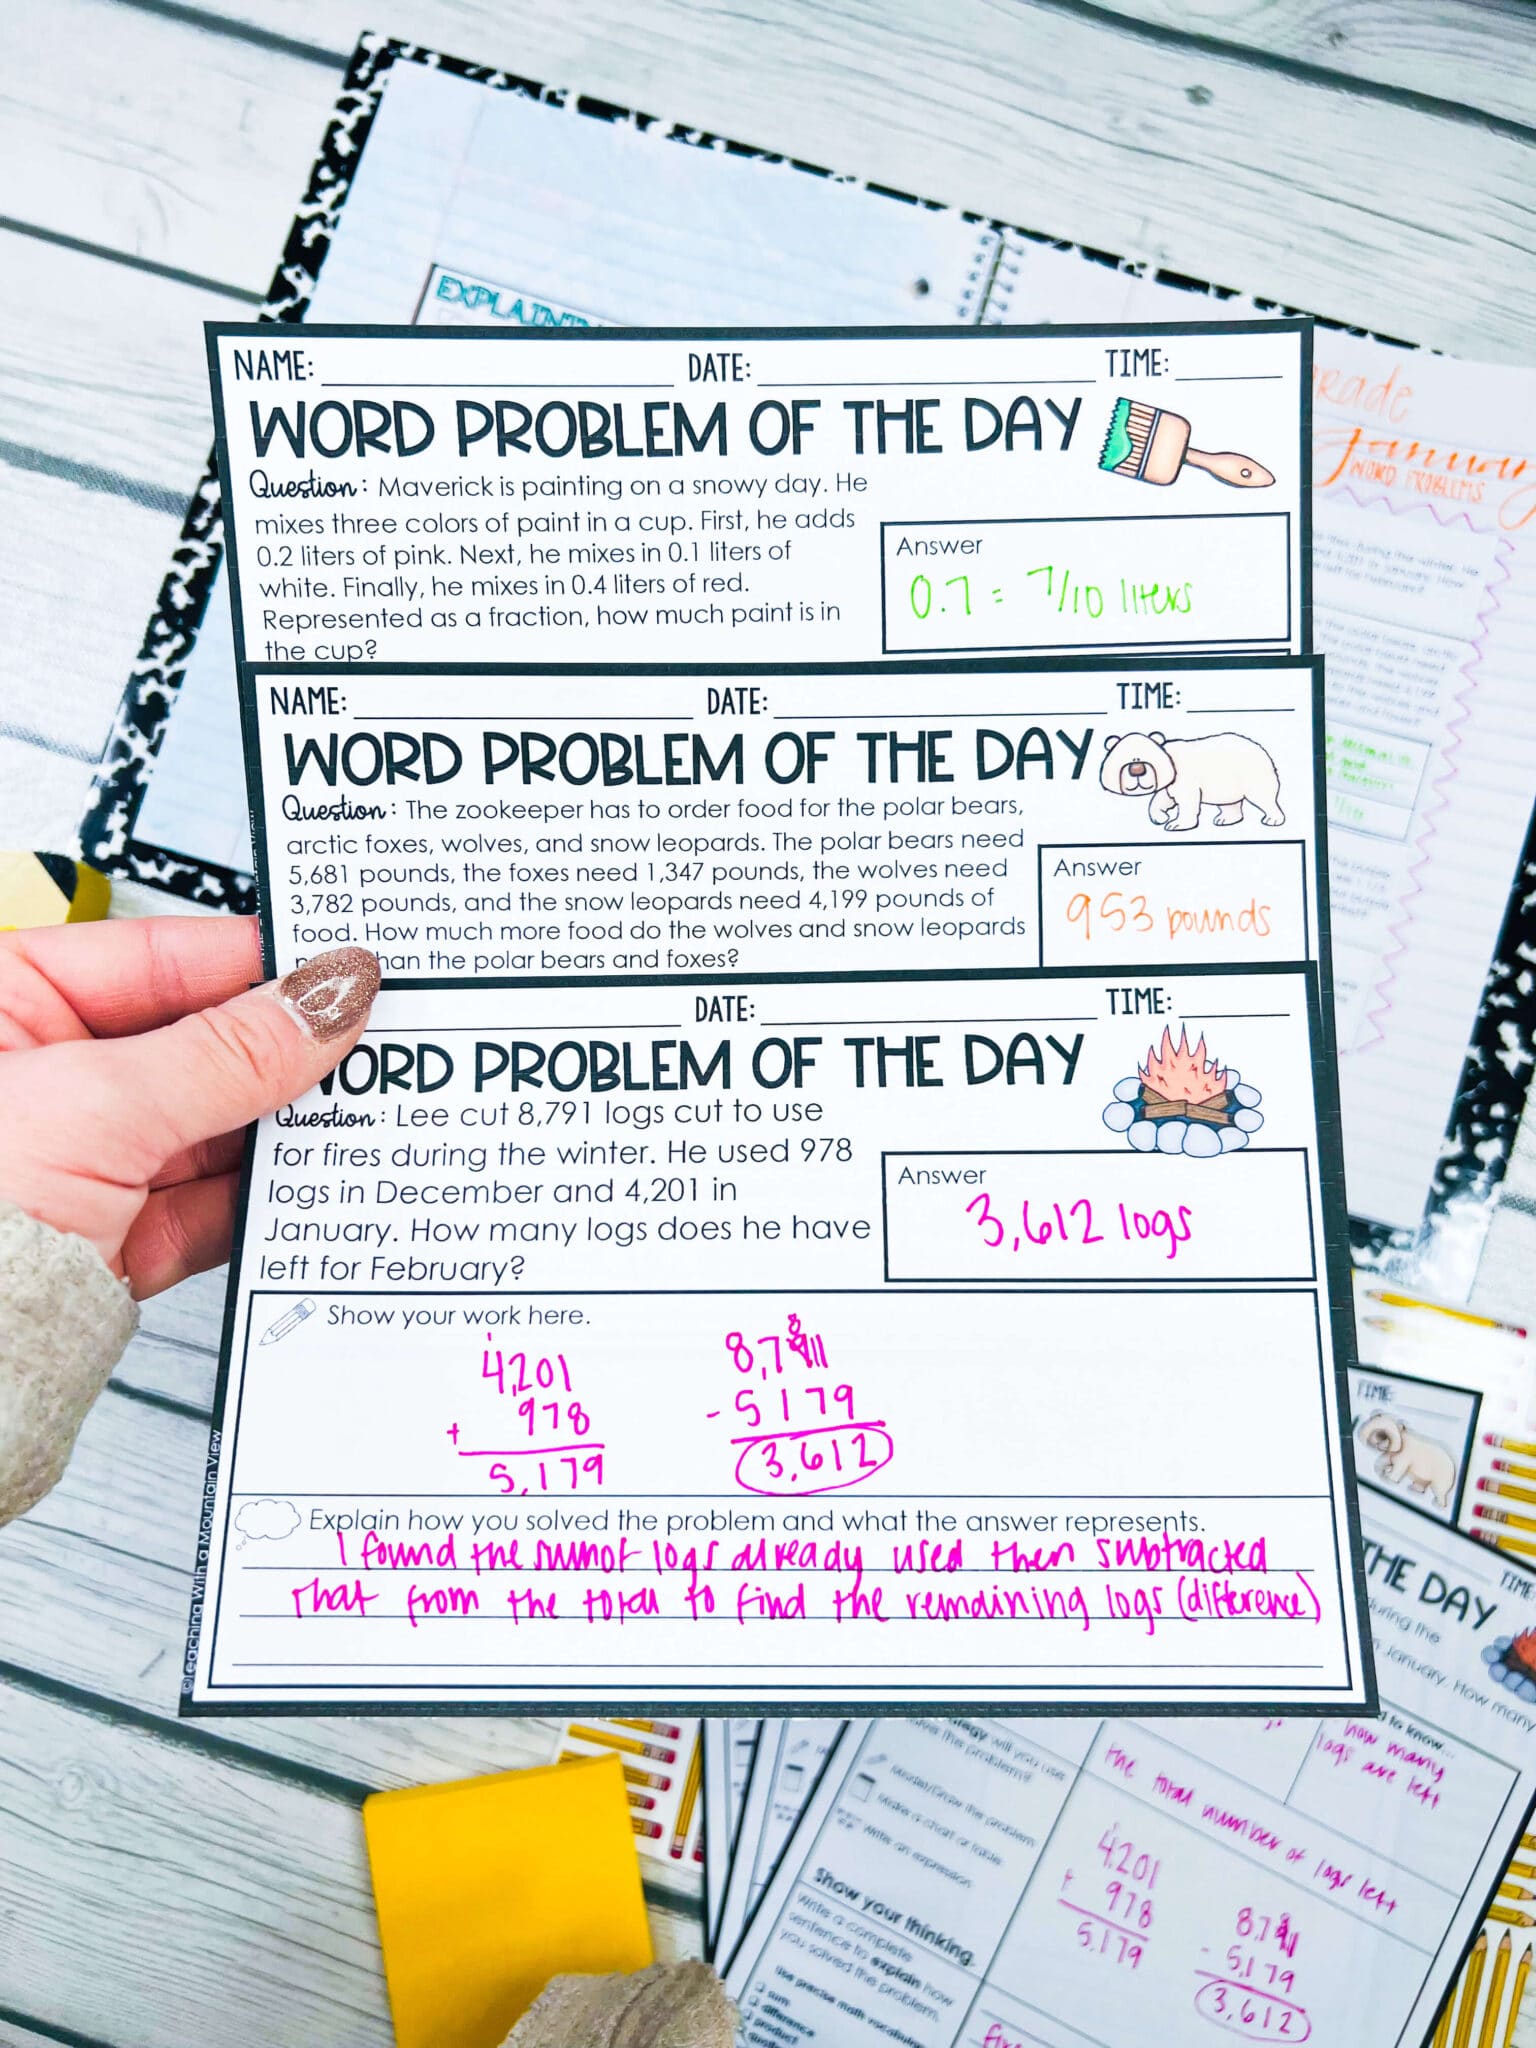 EXPLAININ
NAME: DATE: TIME:
WORD PROBLEM OF THE DAY
Question: Maverick is painting on a snowy day. He
mixes three colors of paint in a cup. First, he adds
0.2 liters of pink. Next, he mixes in 0.1 liters of
white. Finally, he mixes in 0.4 liters of red.
Represented as a fraction, how much paint is in
the cup?
Answer
0.7 = 7/10 liters
January
WORD PROBLEMS
NAME: DATE: TIME:
WORD PROBLEM OF THE DAY
Question: The zookeeper has to order food for the polar bears,
arctic foxes, wolves, and snow leopards. The polar bears need
5,681 pounds, the foxes need 1,347 pounds, the wolves need
3,782 pounds, and the snow leopards need 4,199 pounds of
food. How much more food do the wolves and snow leopards
than the polar bears and foxes?
Answer
953 pounds
DATE: TIME:
WORD PROBLEM OF THE DAY
Question: Lee cut 8,791 logs cut to use
for fires during the winter. He used 978
logs in December and 4,201 in
January. How many logs does he have
left for February?
Answer
3,612 logs
Show your work here.
1
4,201
+ 978
5,179
8
8,7911
- 5179
3,612
Explain how you solved the problem and what the answer represents.
I found the sum of logs already used then subtracted
that from the total to find the remaining logs (difference)
©Teaching With a Mountain View
TIME:
THE DAY
TIME:
during the
January. How many
to know...
how many
logs are left
strategy will you use
solve this problem?
Model/Draw the problem
Make a chart or table
Write an expression
the total number of logs left
4,201
+ 978
5,179
8,7911
- 5,179
3,612
Show your thinking.
Write a complete
sentence to explain how
you solved the problem.
Use precise math vocabulary
sum
difference
product